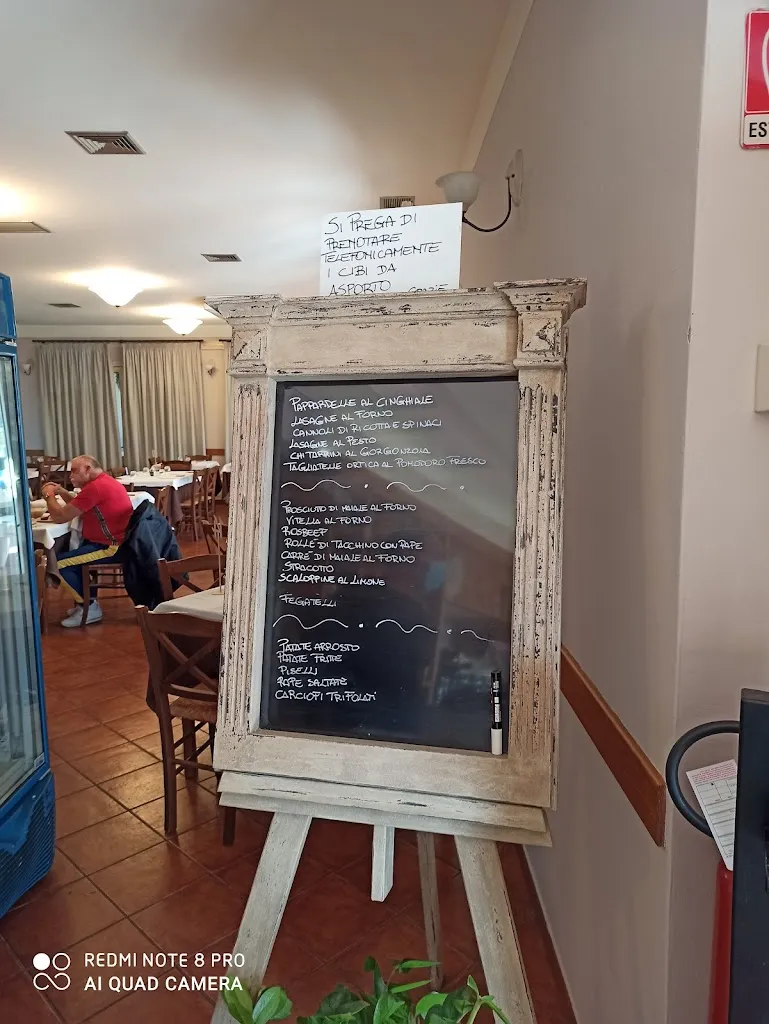 ES
SI PREGA DI
PRENOTARE
TELEFONICAMENTE
I CIBI DA
ASPORTO GRAZIE
PAPPARDELLE AL CINGHIALE
LASAGNE AL FORNO
CANNOLI DI RICOTTA E SPINACI
LASAGNE AL PESTO
CHITARRINI AL GORGONZOLA
TAGLIATELLE ORTICA AL POMODORO FRESCO
PROSCIUTO DI MAIALE AL FORNO
VITELLA AL FORNO
ROSBEEF
ROLLÈ DI TACCHINO CON RAPE
CARRÈ DI MAIALE AL FORNO
STRACOTTO
SCALOPPINE AL LIMONE
FEGATELLI
PATATE ARROSTO
PATATE FRITTE
PISELLI
RAPE SALTATE
CARCIOFI TRIFOLATI
REDMI NOTE 8 PRO
AI QUAD CAMERA